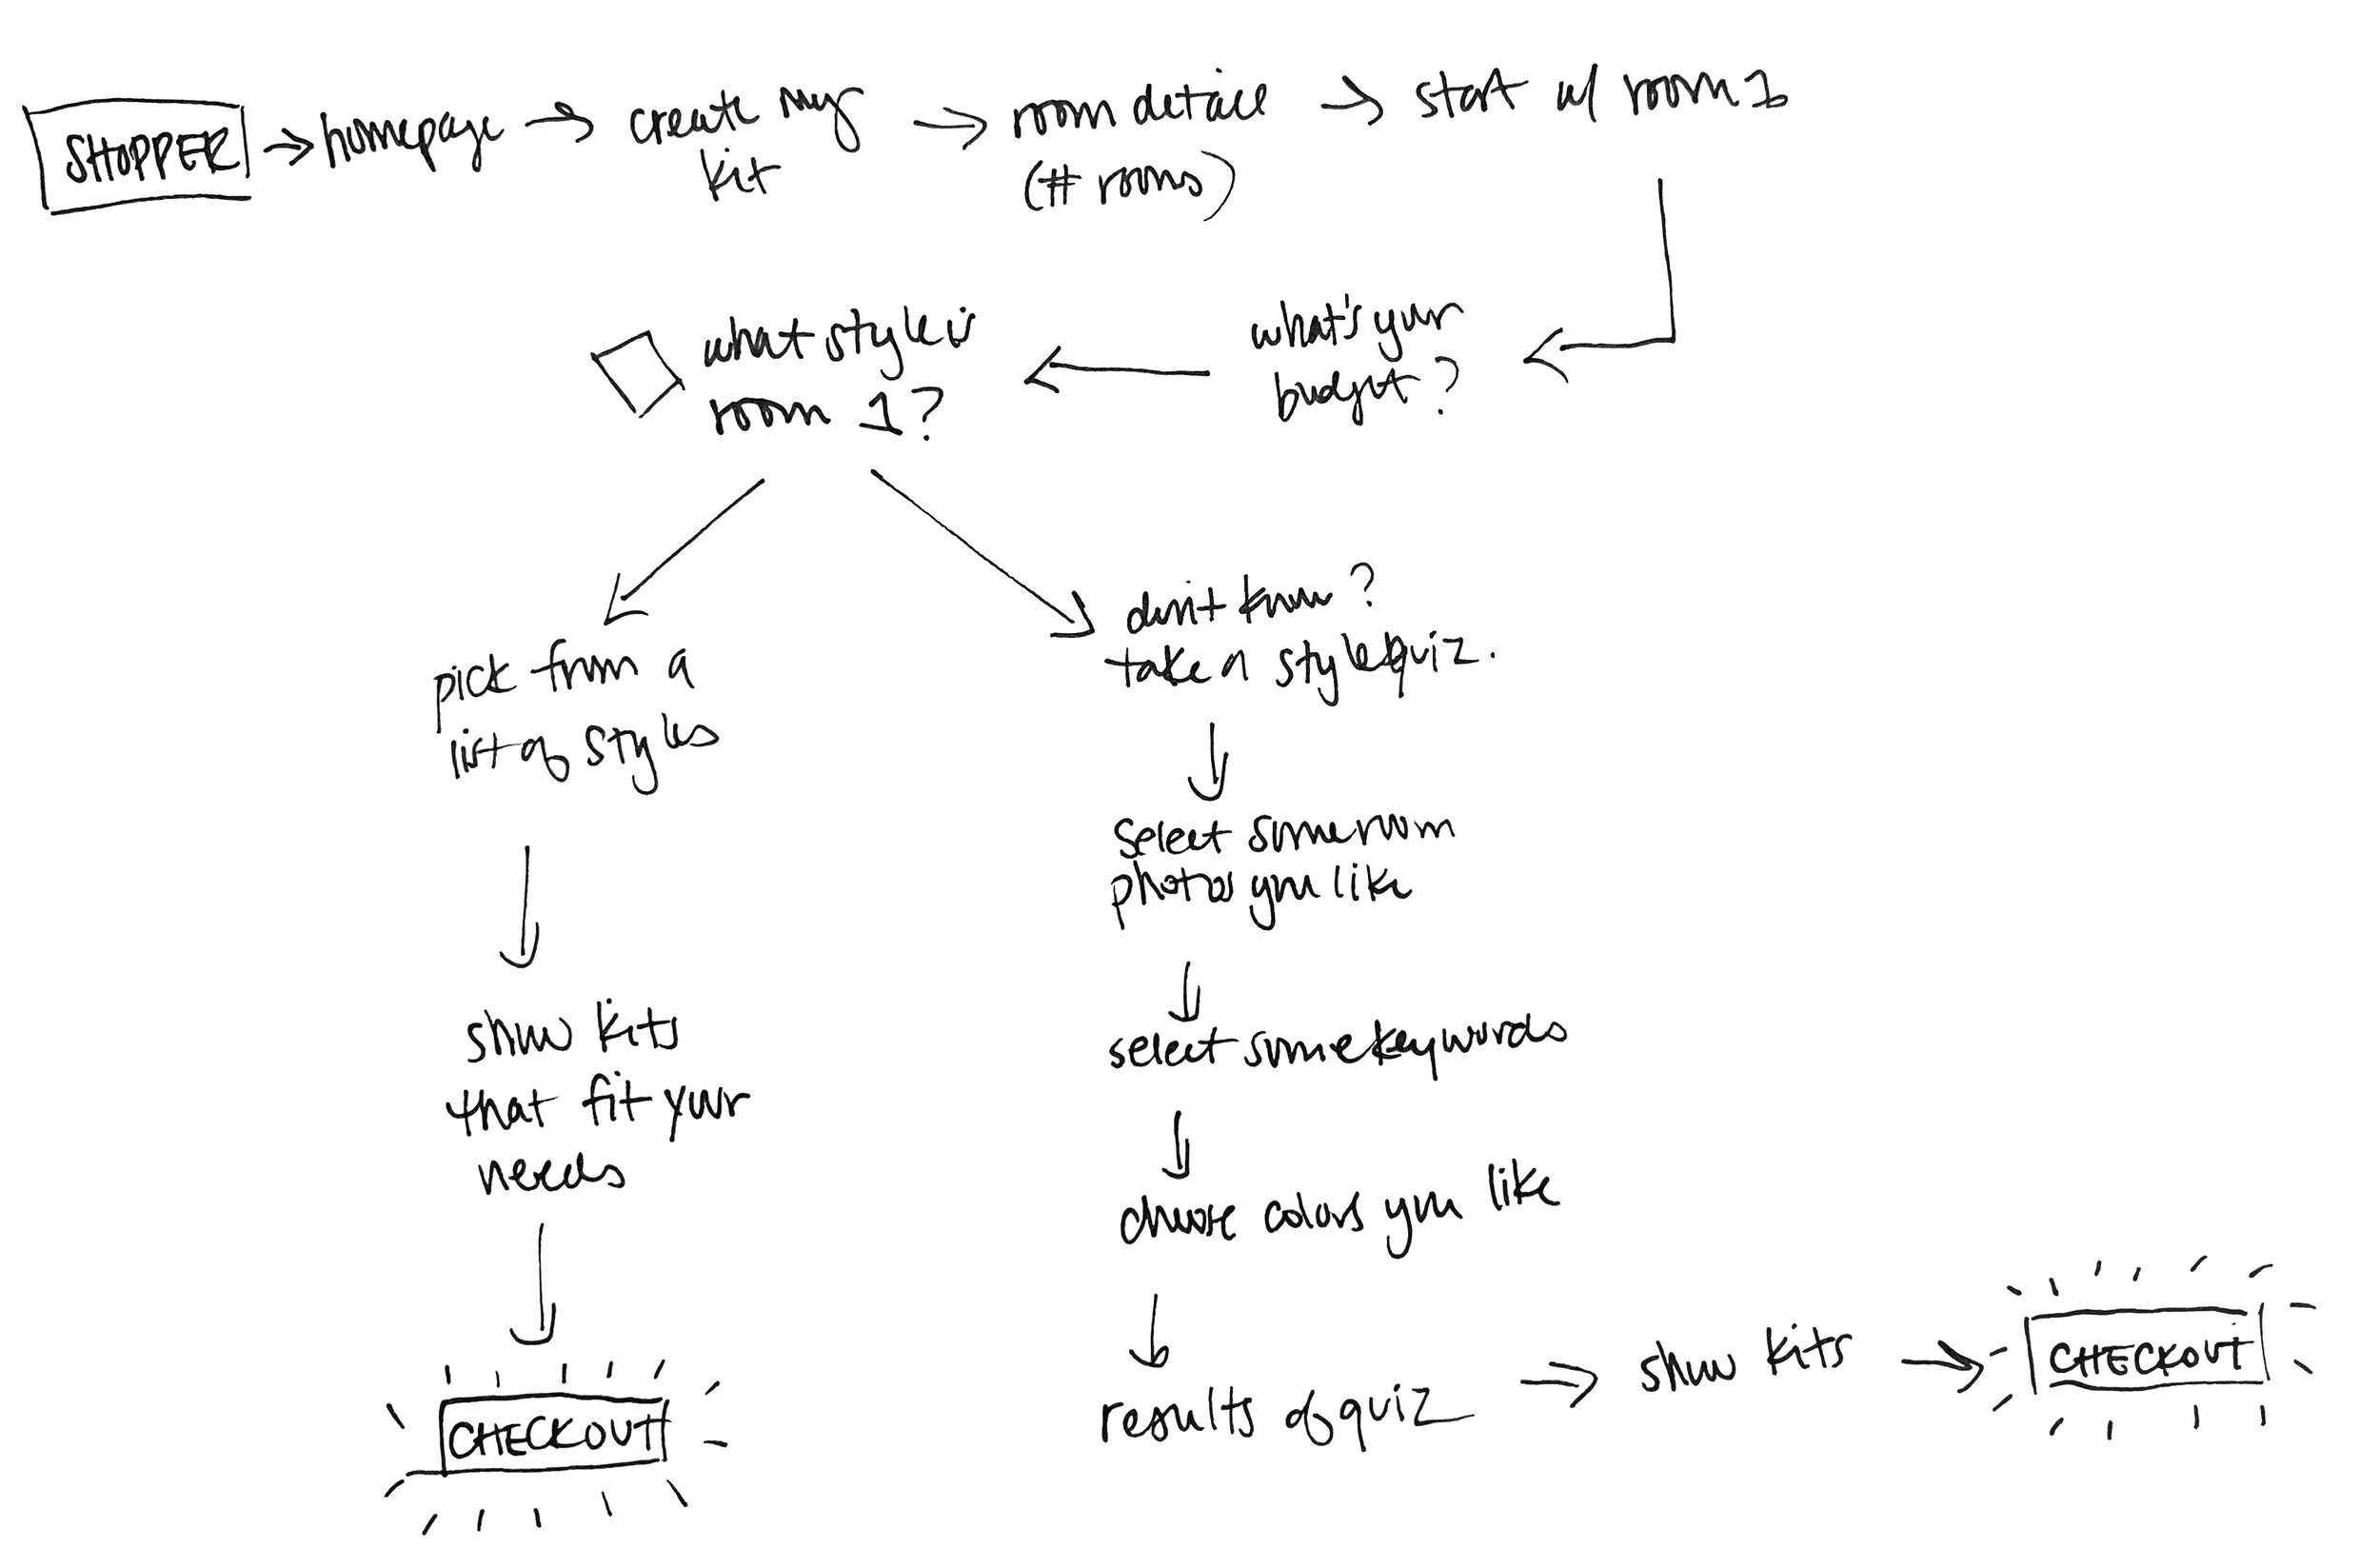 SHOPPER
homepage
create my
kit
room detail
(# rooms)
start w/ room 1
what's your
budget?
what style is
room 1?
pick from a
list of styles
show kits
that fit your
needs
CHECKOUT
don't know?
take a style quiz.
select some room
photos you like
select some keywords
choose colors you like
results of quiz
show kits
CHECKOUT